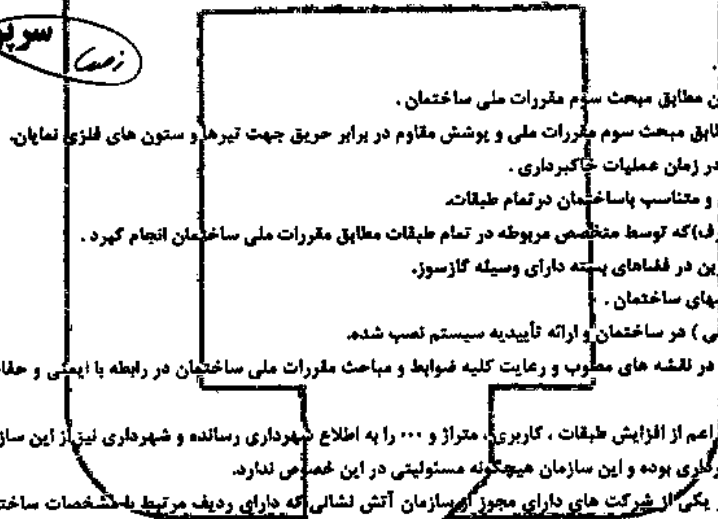 سرپر
.
ن مطابق مبحث سوم مقررات ملی ساختمان .
طابق مبحث سوم مقررات ملی و پوشش مقاوم در برابر حریق جهت تیرها و ستون های فلزی نمایان.
در زمان عملیات خاکبرداری .
و متناسب باساختمان درتمام طبقات.
رف)که توسط متخصص مربوطه در تمام طبقات مطابق مقررات ملی ساختمان انجام گیرد .
ین در فضاهای بسته دارای وسیله گازسوز.
بهای ساختمان .
ی ) در ساختمان و ارائه تأییدیه سیستم نصب شده.
در نقشه های مطلوب و رعایت کلیه ضوابط و مباحث مقررات ملی ساختمان در رابطه با ایمنی و حفا
اعم از افزایش طبقات ، کاربری ، متراژ و ... را به اطلاع شهرداری رسانده و شهرداری نیز از این ساز
رداری بوده و این سازمان هیچگونه مسئولیتی در این خصوص ندارد.
یکی از شرکت های دارای مجوز از سازمان آتش نشانی که دارای ردیف مرتبط با مشخصات ساخت